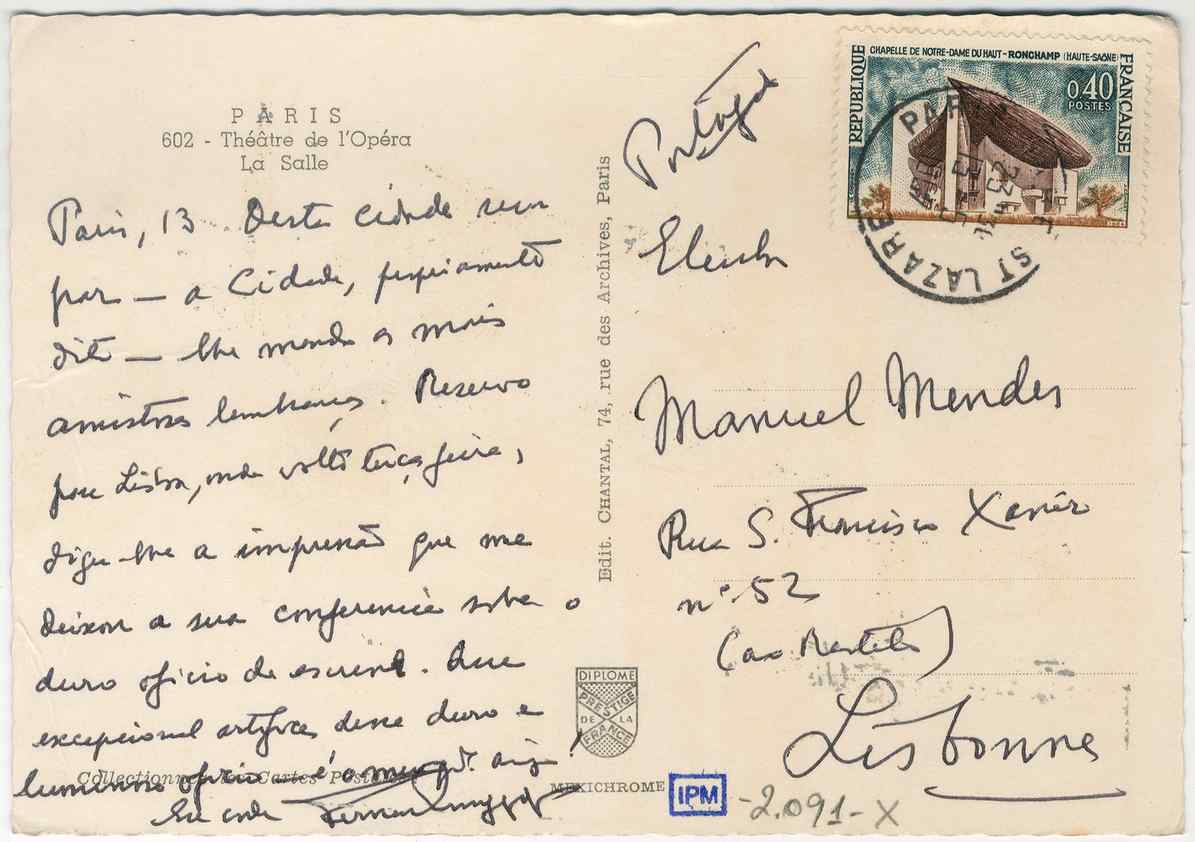 PARIS
602 - Théâtre de l'Opéra
La Salle
Paris, 13. Desta cidade sem
par — a Cidade, propriamente
dita — lhe mando as mais
amistosas lembranças. Reservo
para Lisboa, onde volto terça feira,
digo-lhe a impressão que me
deixou a sua conferencia sobre o
duro oficio de escrever. Que
excepcional artifice desse duro e
luminoso oficio é o meu
Collectionnez les Cartes Postales
Edit. CHANTAL, 74, rue des Archives, Paris
DIPLOME
PRESTIGE
DE LA
FRANCE
MEXICHROME
IPM
-2.091-X
Portugal
REPUBLIQUE FRANÇAISE
CHAPELLE DE NOTRE-DAME DU HAUT - RONCHAMP (HAUTE-SAÔNE)
0,40
POSTES
PARIS
ST LAZARE
Manuel Mendes
Rua S. Francisco Xavier
nº. 52
(ao Restelo)
Lisbonne